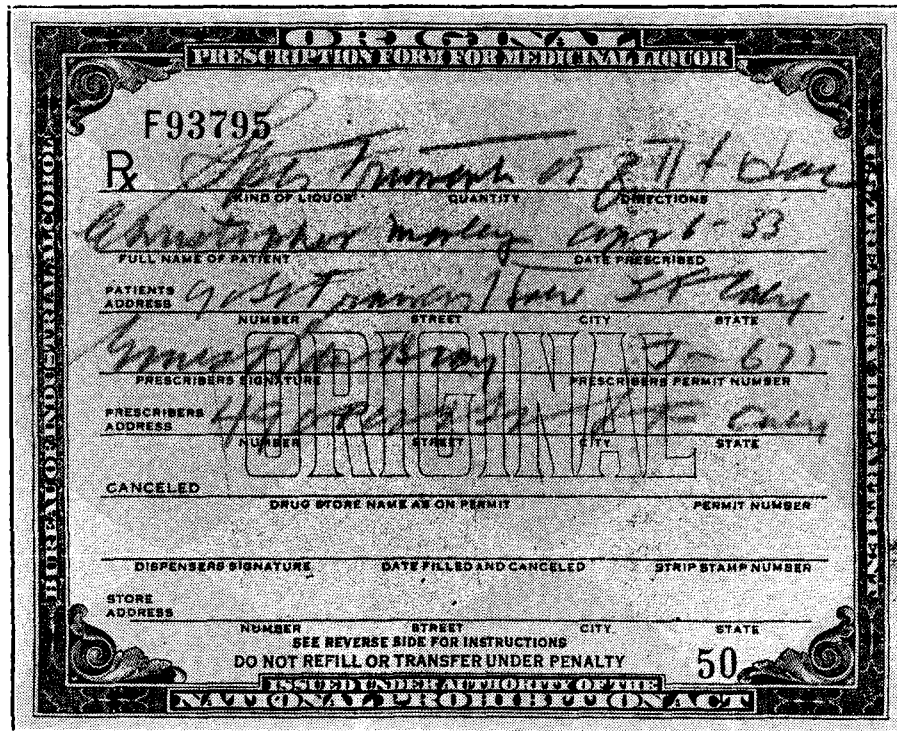 ORIGINAL
PRESCRIPTION FORM FOR MEDICINAL LIQUOR
BUREAU OF INDUSTRIAL ALCOHOL
U.S. TREASURY DEPARTMENT
F93795
Rx Spts Frumenti
KIND OF LIQUOR QUANTITY DIRECTIONS
Christopher Morley Apr 6-33
FULL NAME OF PATIENT DATE PRESCRIBED
PATIENTS ADDRESS St Francis
NUMBER STREET CITY STATE
PRESCRIBERS SIGNATURE PRESCRIBERS PERMIT NUMBER
PRESCRIBERS ADDRESS 490 Post
NUMBER STREET CITY STATE
ORIGINAL
CANCELED
DRUG STORE NAME AS ON PERMIT PERMIT NUMBER
DISPENSERS SIGNATURE DATE FILLED AND CANCELED STRIP STAMP NUMBER
STORE ADDRESS
NUMBER STREET CITY STATE
SEE REVERSE SIDE FOR INSTRUCTIONS
DO NOT REFILL OR TRANSFER UNDER PENALTY 50
ISSUED UNDER AUTHORITY OF THE
NATIONAL PROHIBITION ACT